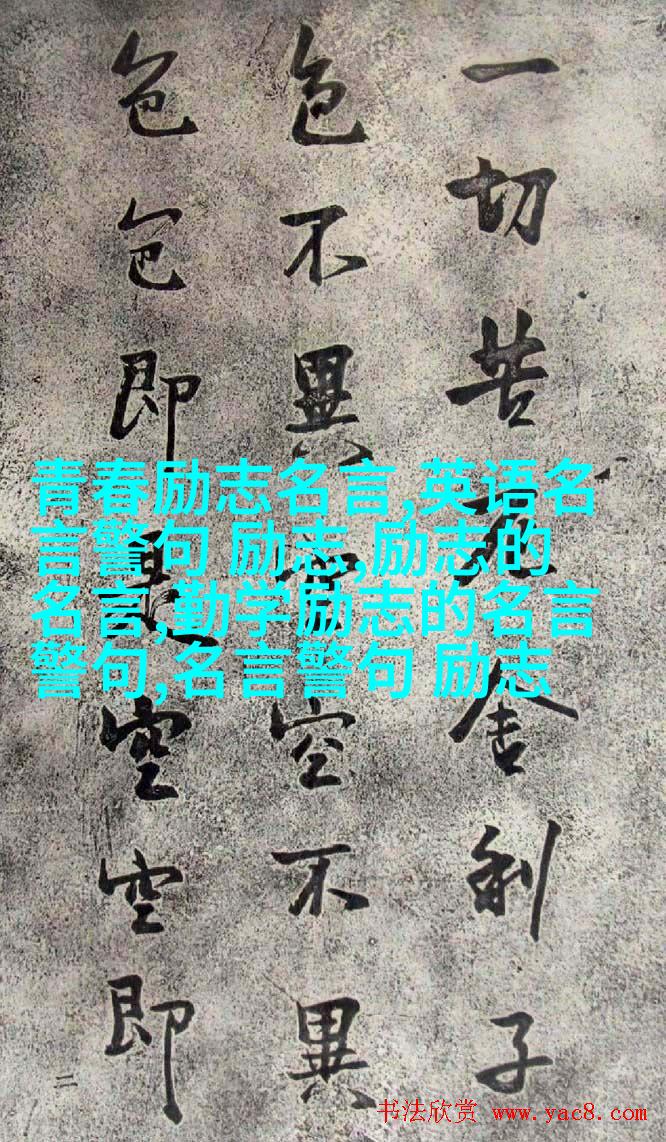 一切苦厄舍利子
色不異空空不異
色色即是空空即
二
青春励志名言,英语名
言警句 励志,励志的
名言,勤学励志的名言
警句,名言警句 励志
书法欣赏 www.yac8.com